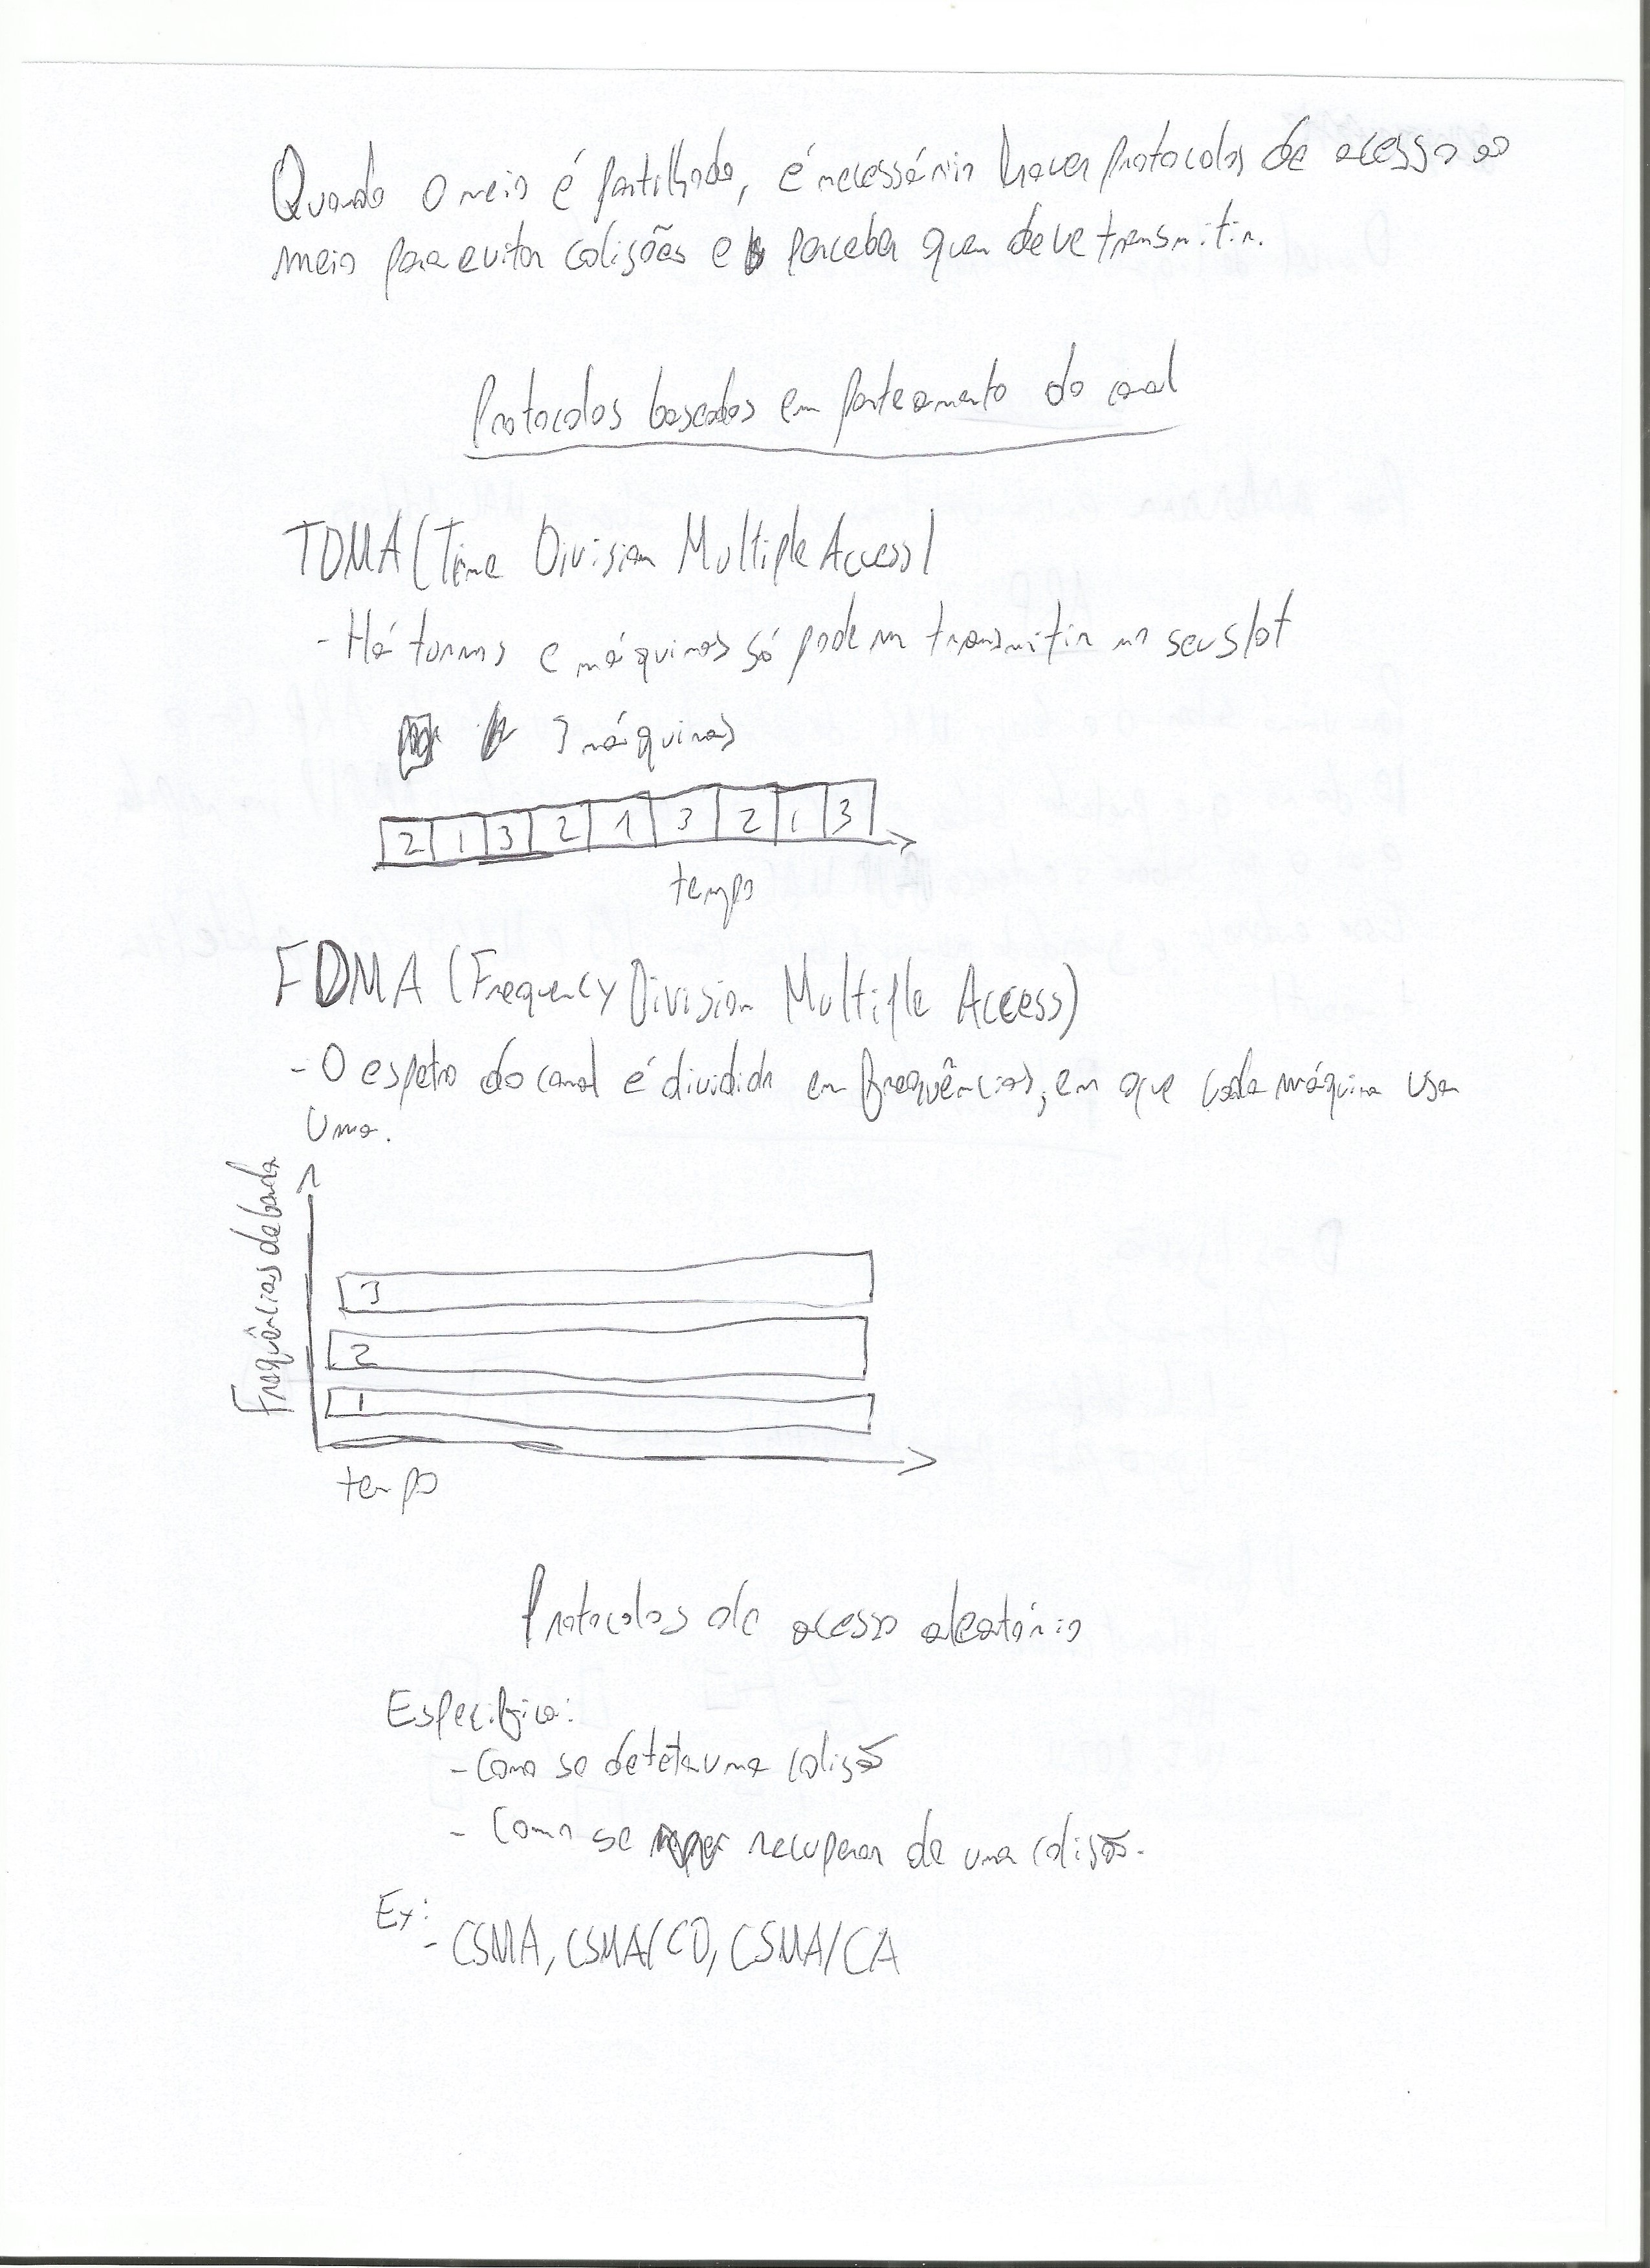 Quando o meio é partilhado, é necessário haver protocolos de acesso ao
meio para evitar colisões e perceber quem deve transmitir.
Protocolos baseados em parteamento do canal
TDMA (Time Division Multiple Access)
- Há turnos e máquinas só podem transmitir no seu slot
3 máquinas
2 1 3 2 1 3 2 1 3
tempo
FDMA (Frequency Division Multiple Access)
- O espetro do canal é dividido em frequências, em que cada máquina usa
uma.
Frequências de banda
3
2
1
tempo
Protocolos de acesso aleatório
Especifica:
- Como se deteta uma colisão
- Como se recuperar de uma colisão.
Ex:
- CSMA, CSMA/CD, CSMA/CA